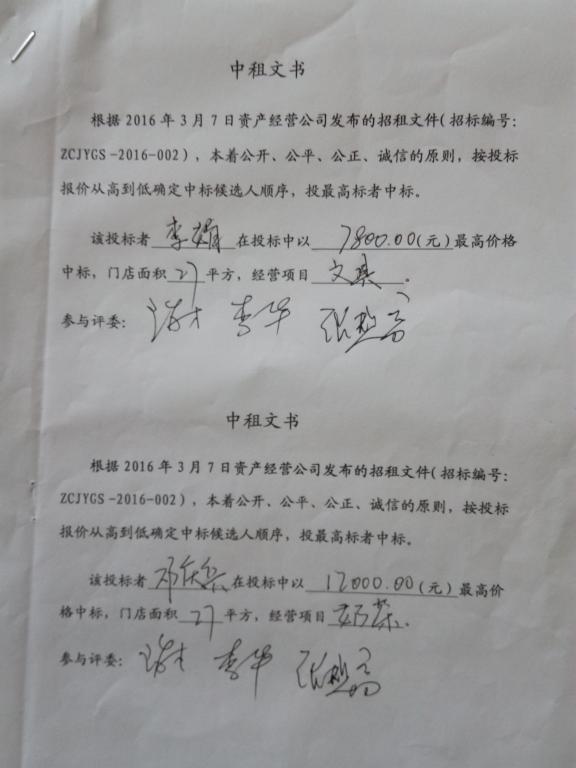 中租文书
根据2016年3月7日资产经营公司发布的招租文件(招标编号:
ZCJYGS-2016-002),本着公开、公平、公正、诚信的原则,按投标
报价从高到低确定中标候选人顺序,投最高标者中标。
该投标者 李娟 在投标中以 7800.00(元)最高价格
中标,门店面积 27 平方,经营项目 文具 。
参与评委: 李华
中租文书
根据2016年3月7日资产经营公司发布的招租文件(招标编号:
ZCJYGS-2016-002),本着公开、公平、公正、诚信的原则,按投标
报价从高到低确定中标候选人顺序,投最高标者中标。
该投标者 在投标中以 12000.00(元)最高价
格中标,门店面积 27 平方,经营项目 奶茶 。
参与评委: 李华